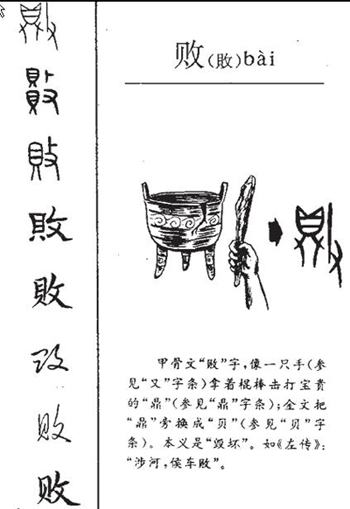 败(敗)bài
甲骨文“败”字，像一只手(参
见“又”字条)拿着棍棒击打宝贵
的“鼎”(参见“鼎”字条);金文把
“鼎”旁换成“贝”(参见“贝”字
条)。本义是“毁坏”。如《左传》：
“涉河，侯车败”。
敗
敗
败
败